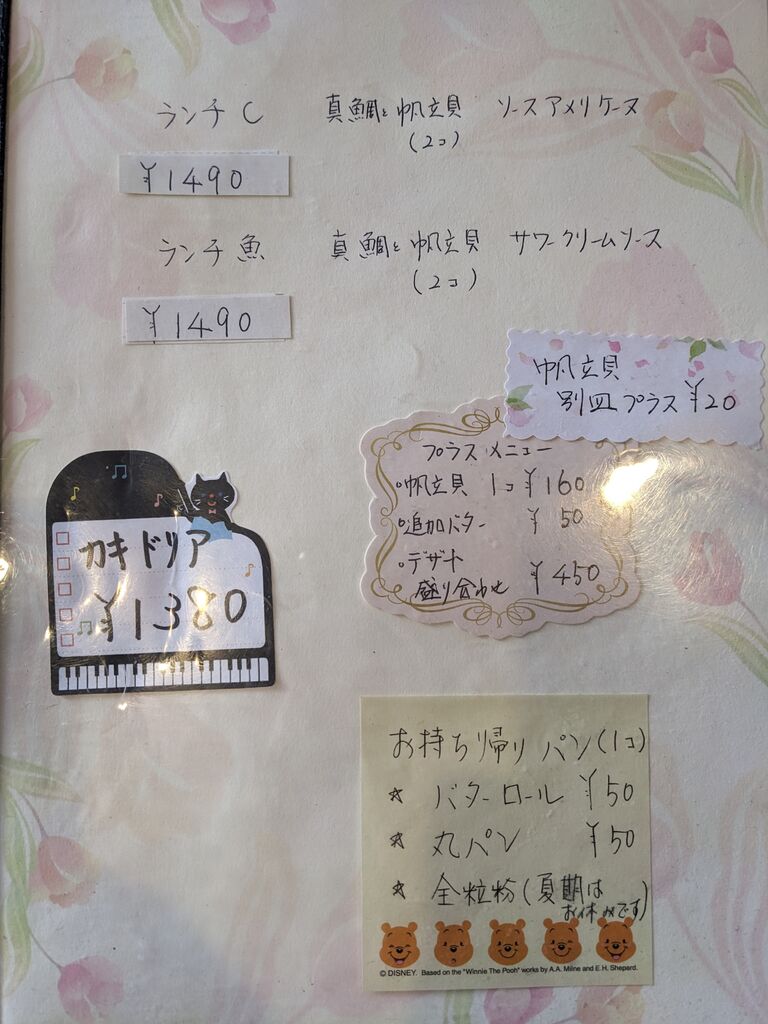 ランチC 真鯛と帆立貝 ソースアメリケーヌ
(2コ)
¥1490
ランチ魚 真鯛と帆立貝 サワークリームソース
(2コ)
¥1490
帆立貝
別皿プラス¥20
プラスメニュー
•帆立貝 1コ¥160
•追加バター ¥50
•デザート
盛り合わせ ¥450
カキドリア
¥1380
お持ち帰りパン(1コ)
☆ バターロール ¥50
☆ 丸パン ¥50
☆ 全粒粉(夏期は
お休みです)
© DISNEY. Based on the "Winnie The Pooh" works by A.A. Milne and E.H. Shepard.